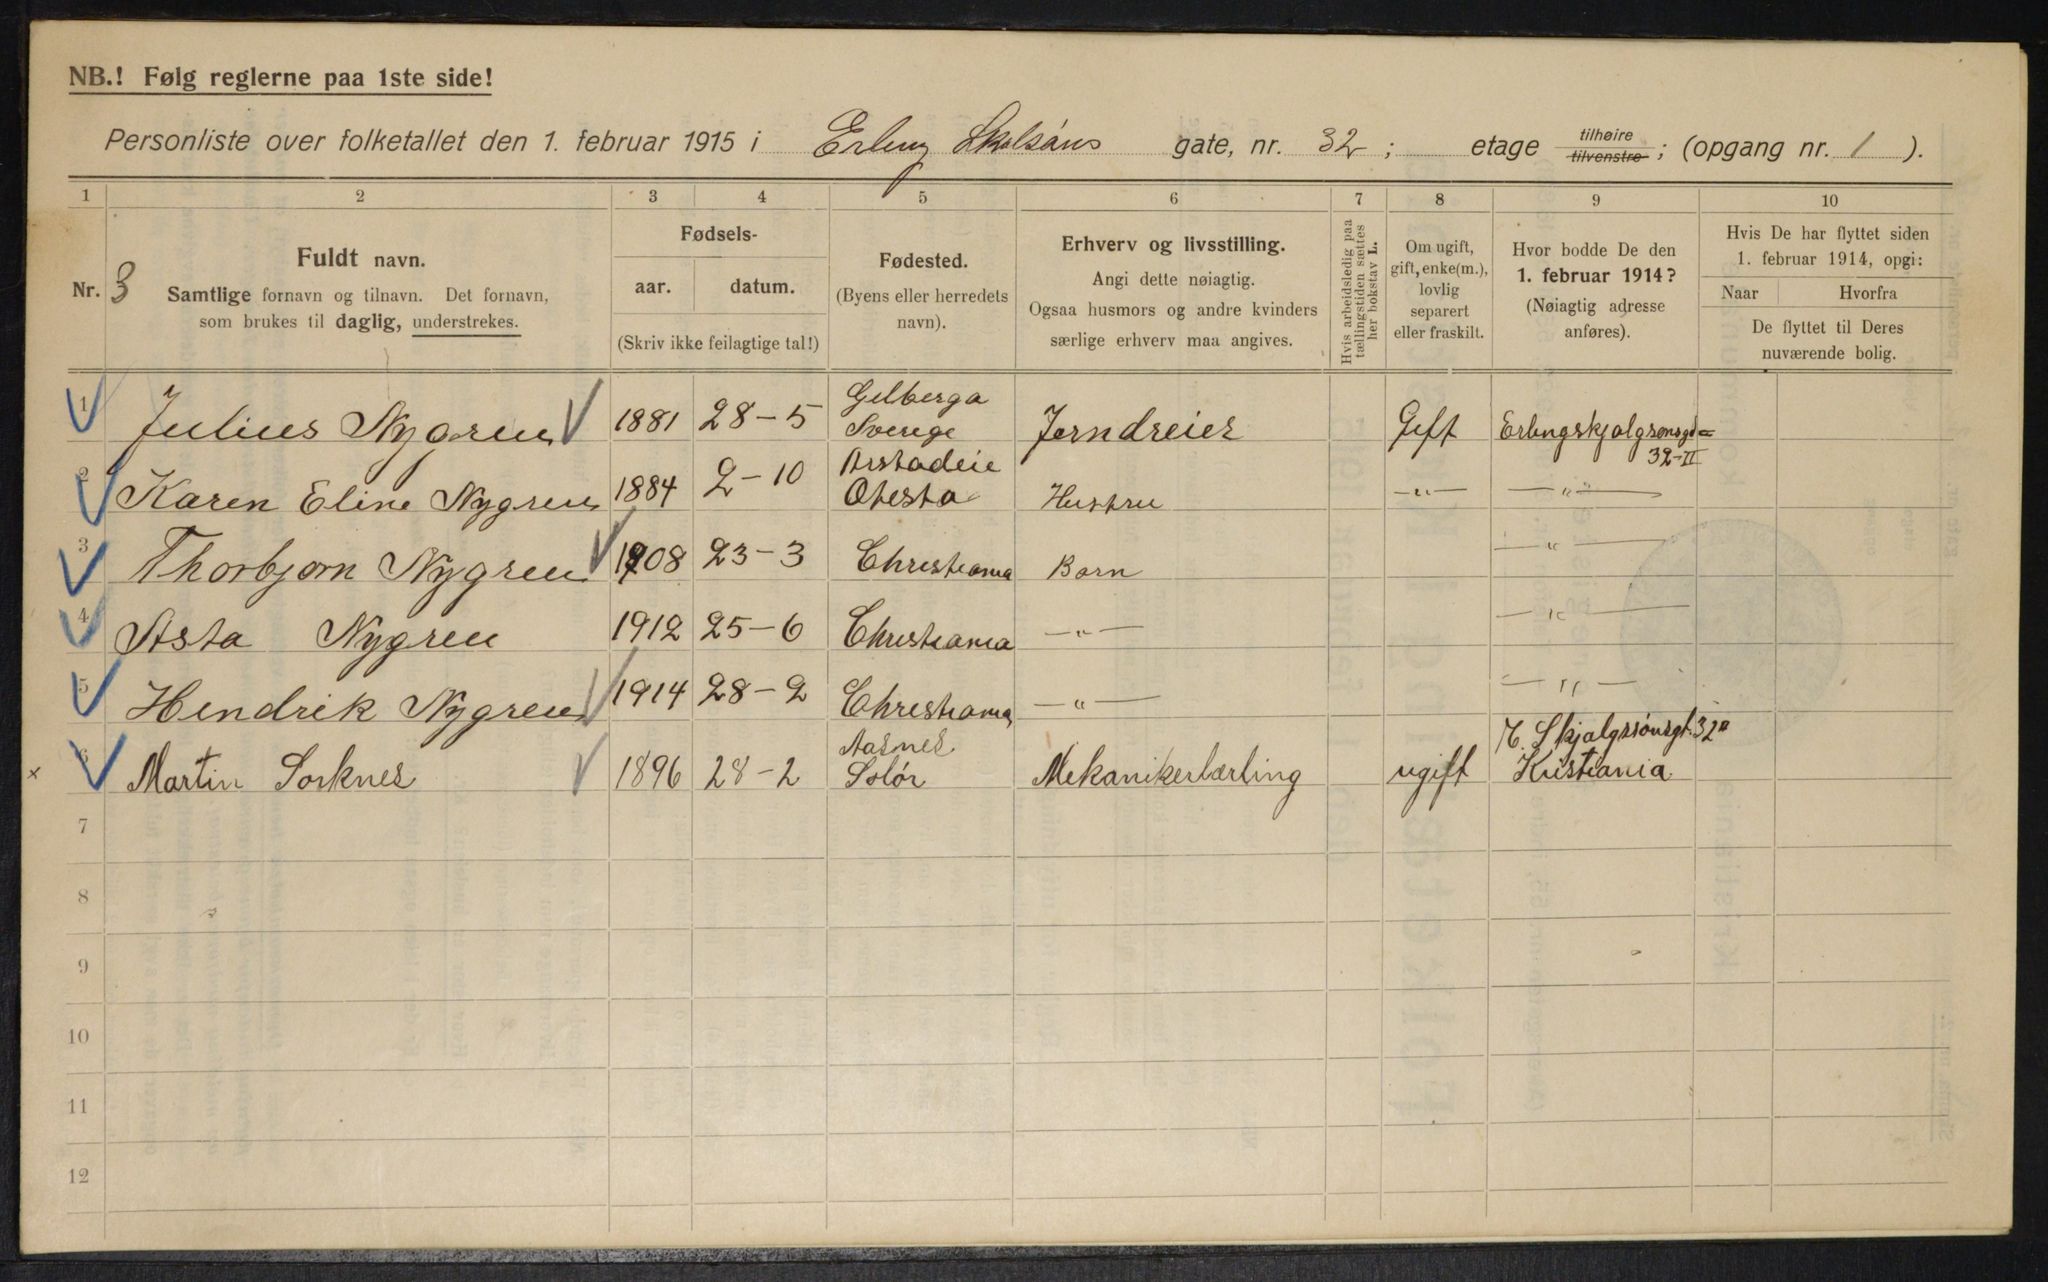 NB.! Følg reglerne paa 1ste side!
Personliste over folketallet den 1. februar 1915 i Erling Skalsøns gate, nr. 32 ; etage tilhøire tilvenstre ; (opgang nr. 1 ).
1 2 3 4 5 6 7 8 9 10
Nr. 3
Fuldt navn.
Samtlige fornavn og tilnavn. Det fornavn,
som brukes til daglig, understrekes.
Fødsels-
aar. datum.
(Skriv ikke feilagtige tal!)
Fødested.
(Byens eller herredets
navn).
Erhverv og livsstilling.
Angi dette nøiagtig.
Ogsaa husmors og andre kvinders
særlige erhverv maa angives.
Hvis arbeidsledig paa
tællingstiden sættes
her bokstav L.
Om ugift,
gift, enke(m.),
lovlig
separert
eller fraskilt.
Hvor bodde De den
1. februar 1914?
(Nøiagtig adresse
anføres).
Hvis De har flyttet siden
1. februar 1914, opgi:
Naar Hvorfra
De flyttet til Deres
nuværende bolig.
1 Julius Nygren 1881 28-5 Gelberga Sverege Jerndreier Gift Erlingskjalgsønsgd= 32-II
2 Karen Eline Nygren 1884 2-10 Otesta Hustru -„- -„-
3 Thorbjørn Nygren 1908 23-3 Christiania Barn -„-
4 Asta Nygren 1912 25-6 Christiania -„- -„-
5 Hendrik Nygren 1914 28-2 Christiania -„- -„-
x 6 Martin Sorknes 1896 28-2 Aasnes Solør Mekanikerlærling ugift E. Skjalgssønsgt. 32 Kristiania
7
8
9
10
11
12